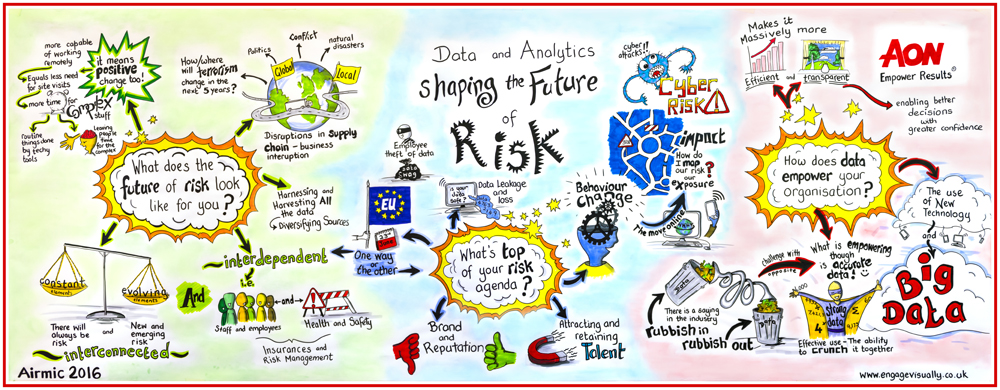 Data and Analytics
shaping the Future
of
Risk
more capable
of working
remotely
Equals less need
for site visits
more time for
Complex
stuff
routine
things done
by techy
tools
Leaving people
time for
the complex
it means
positive
change too!
What does the
future of risk look
like for you?
How/where
will terrorism
change in the
next 5 years?
Politics
Conflict
natural
disasters
Global
Local
Disruptions in supply
chain - business
interuption
Harnessing and
Harvesting All
the data
Diversifying Sources
interdependent
i.e.
constant
elements
evolving
elements
There will
always be
risk
and
New and
emerging
risk
interconnected
And
Staff and employees
and
Health and Safety
Insurances and
Risk Management
Airmic 2016
Employee
theft of data
EU
23rd
June
One way
or the
other
is your
data
safe?
Data Leakage
and loss
What's top
of your risk
agenda?
Brand
and
Reputation
Attracting and
retaining
Talent
Behaviour
Change
cyber
attacks!!
Cyber
Risk
impact
How do
I map
our risk
our
exposure?
The move online
Makes it
Massively more
Efficient and transparent
AON
Empower Results®
enabling better
decisions
with
greater confidence
How does data
empower your
organisation?
The use
of New
Technology
and
Big
Data
challenge with
opposite
What is empowering
though
is accurate
data!
There is a saying
in the industry
rubbish in
rubbish out
data
strong
data
Effective use - The ability
to crunch it together
www.engagevisually.co.uk